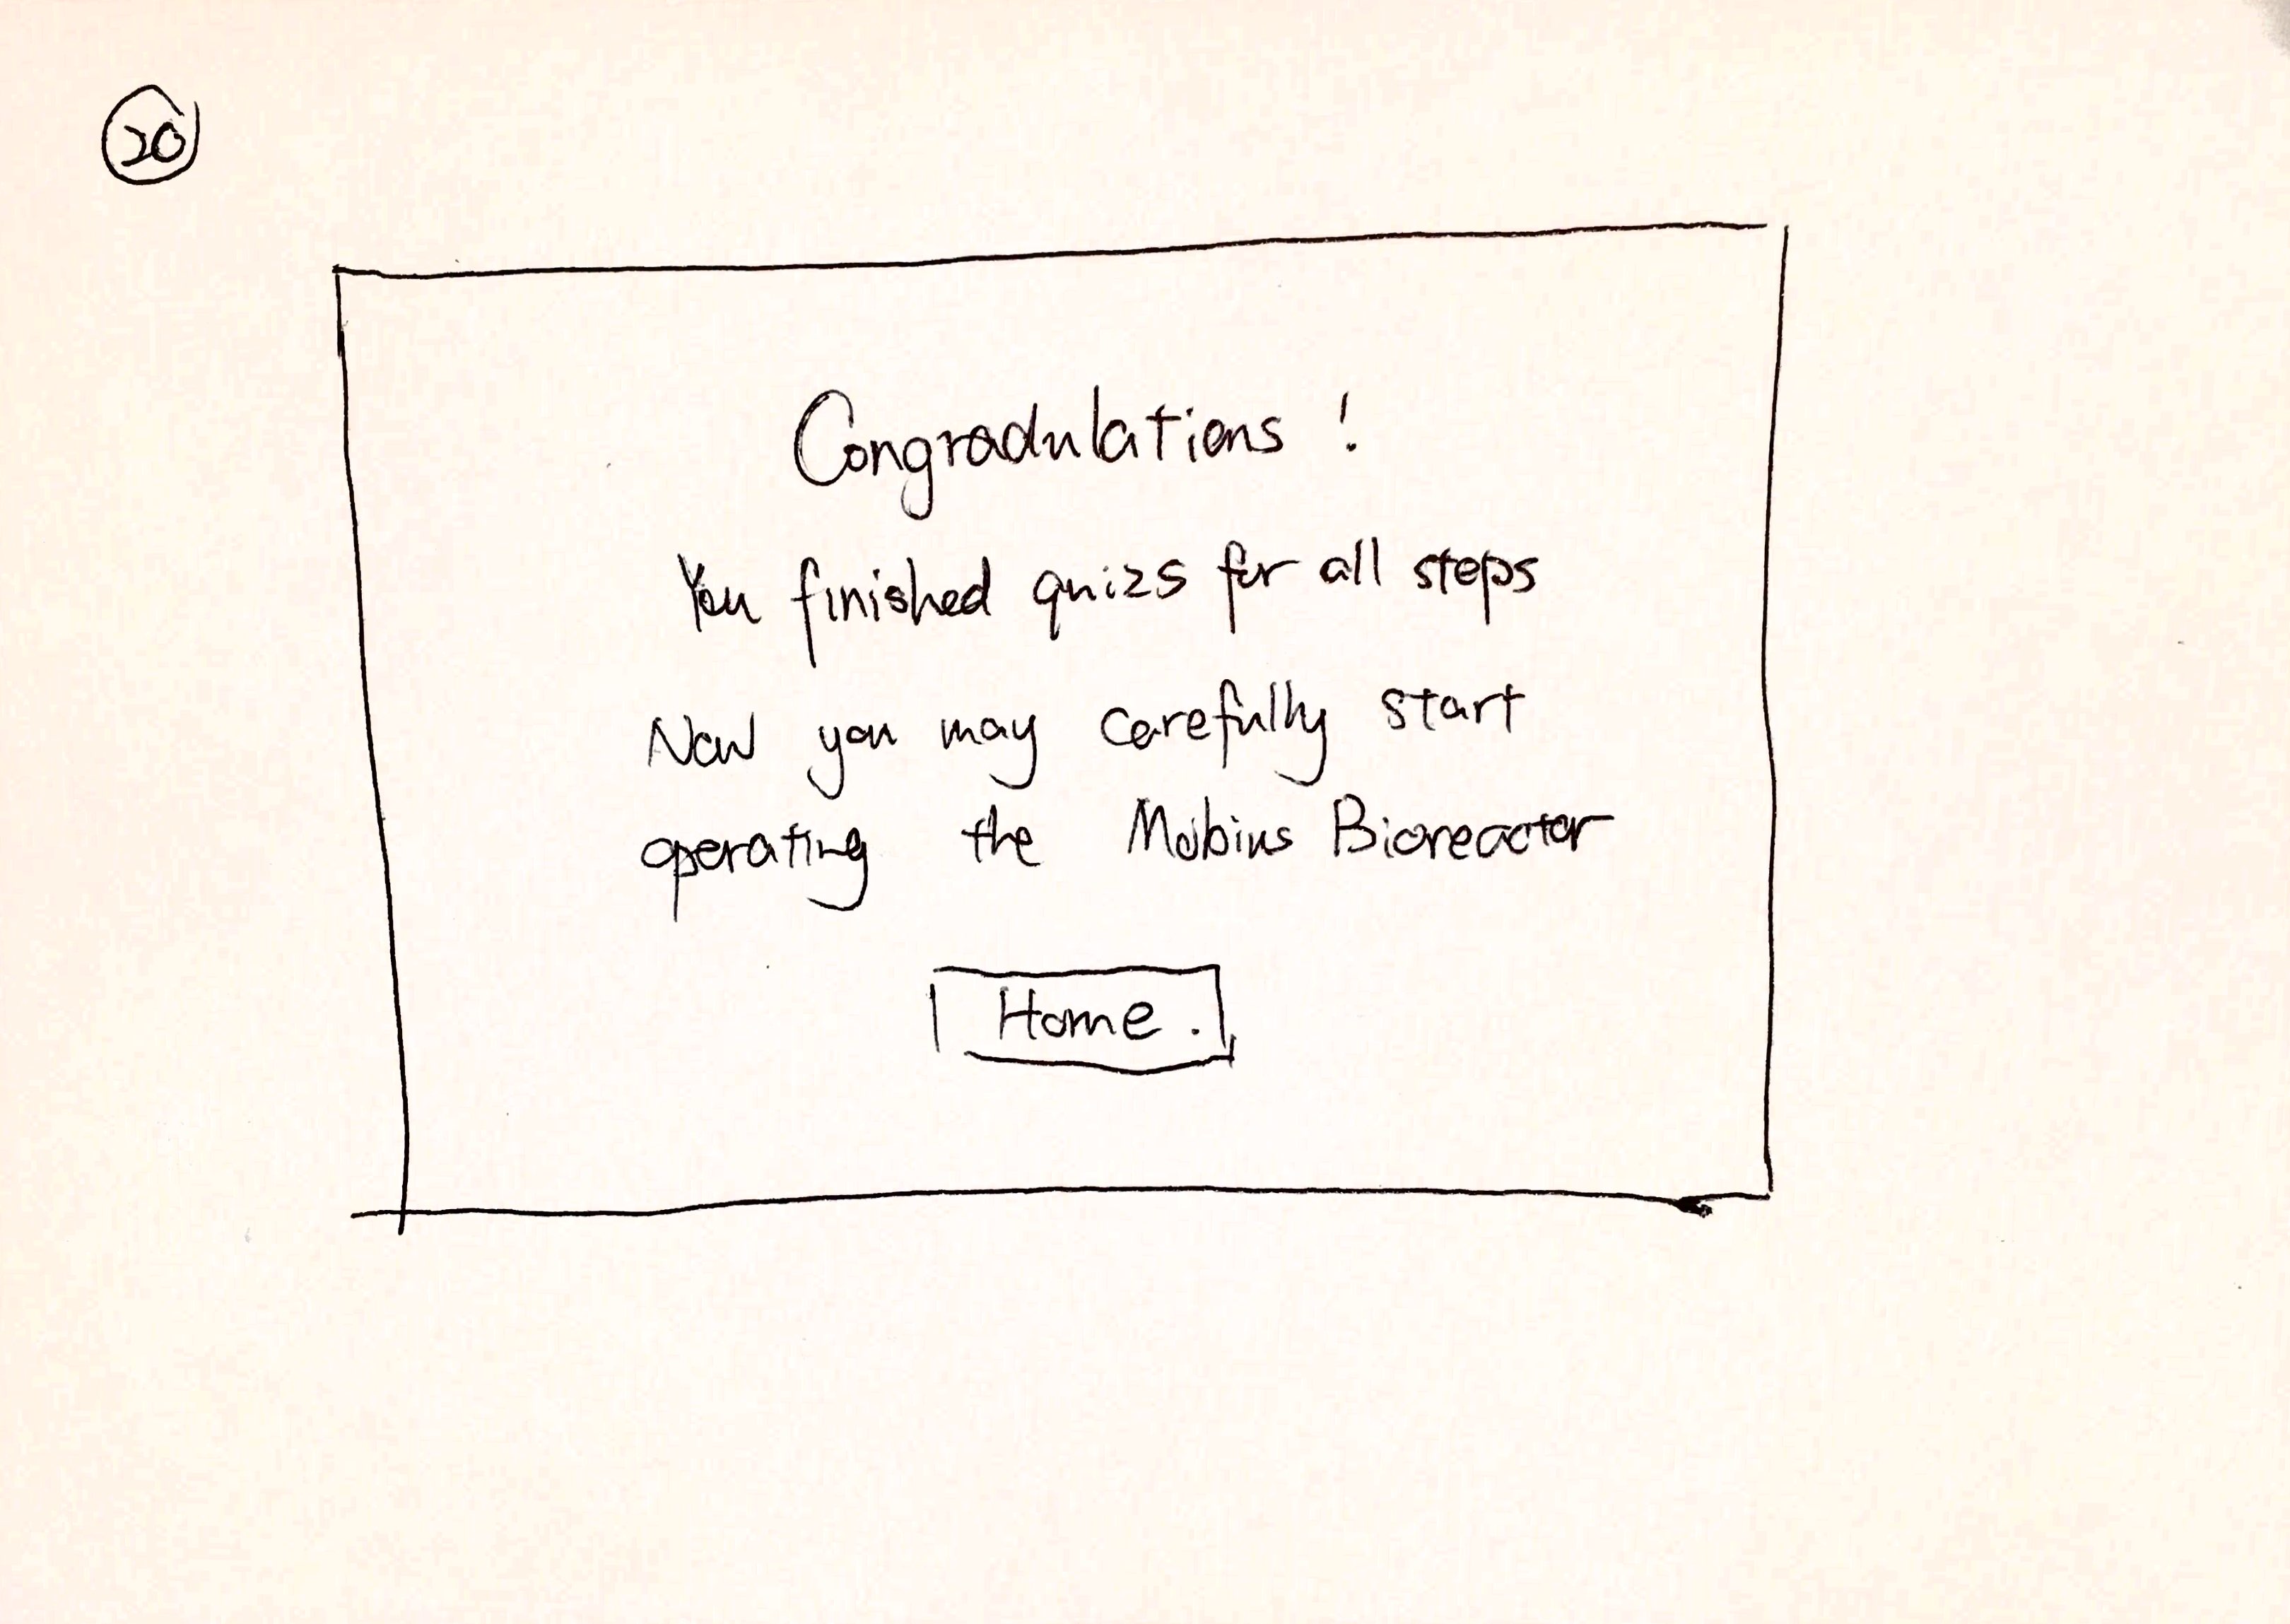 20
Congradulations !
You finished quizs for all steps
Now you may carefully start
operating the Mobius Bioreactor
Home .